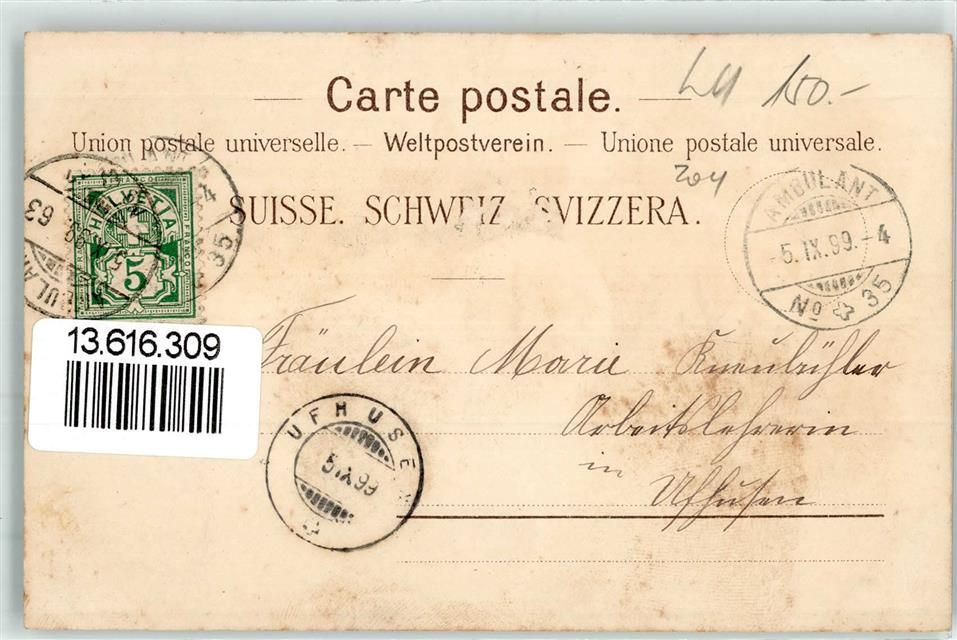 LU 150.-
Carte postale.
Union postale universelle. — Weltpostverein. — Unione postale universale.
204
SUISSE. SCHWEIZ. SVIZZERA.
AMBULANT
-5.IX.99.-4
No 35
HELVETIA
FRANCO
5
63
4
35
13.616.309
Fräulein Marie Kneubühler
Arbeitslehrerin
in
Ufhusen
UFHUSEN
5.IX.99